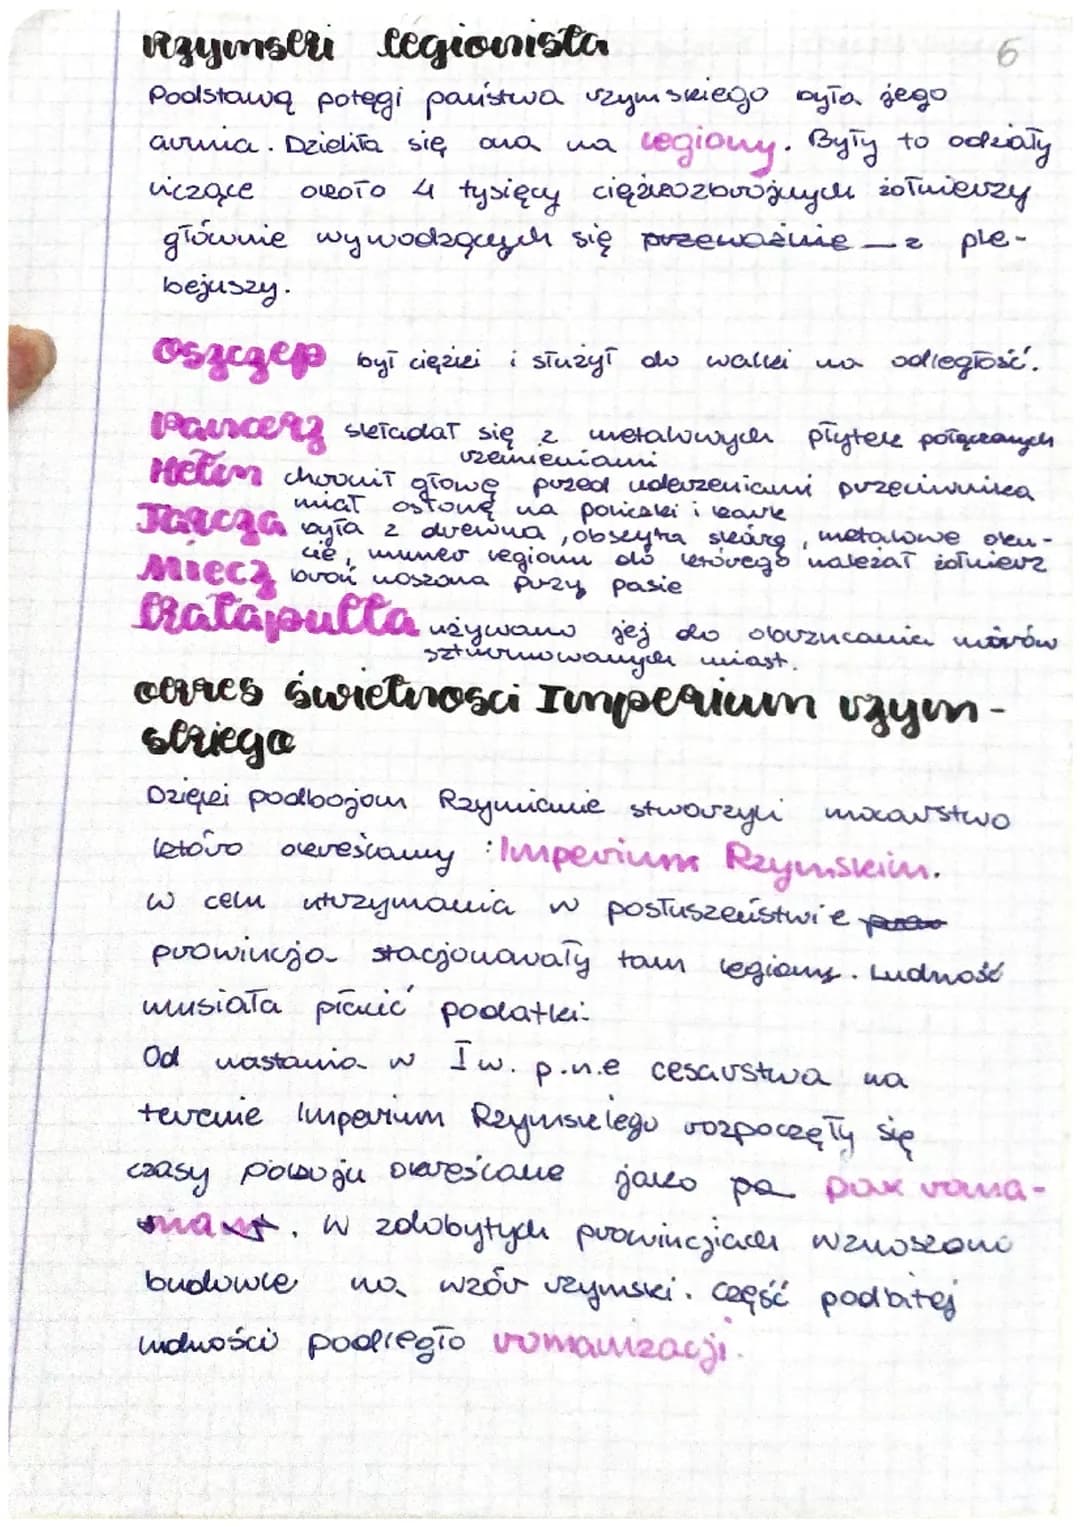 Rzymski legionista
6
Podstawą potęgi państwa rzymskiego była jego
armia. Dzieliła się ona na legiony. Były to oddziały
liczące około 4 tysięcy ciężkozbrojnych żołnierzy
głównie wywodzących się przeważnie z ple-
bejuszy.
Oszczep był ciężki i służył do walki na odległość.
Pancerz składał się z metalowych płytek połączonych
rzemieniami
Hełm chronił głowę przed uderzeniami przeciwnika
miał osłonę na policzki i kark
Tarcza była z drewna, obszyta skórą, metalowe oku-
cie, numer legionu do którego należał żołnierz
Miecz broń noszona przy pasie
Katapulta używano jej do obrzucania murów
szturmowanych miast.
okres świetności Imperium rzym-
skiego
Dzięki podbojom Rzymianie stworzyli mocarstwo
które określamy: Imperium Rzymskim.
w celu utrzymania w posłuszeństwie
prowincja stacjonowały tam legiony. Ludność
musiała płacić podatki.
Od nastania w I w. p.n.e cesarstwa na
terenie Imperium Rzymskiego rozpoczęły się
czasy pokoju określane jako pa pax roma-
na. W zdobytych prowincjach wznoszono
budowle na wzór rzymski. Część podbitej
ludności podległo romanizacji.